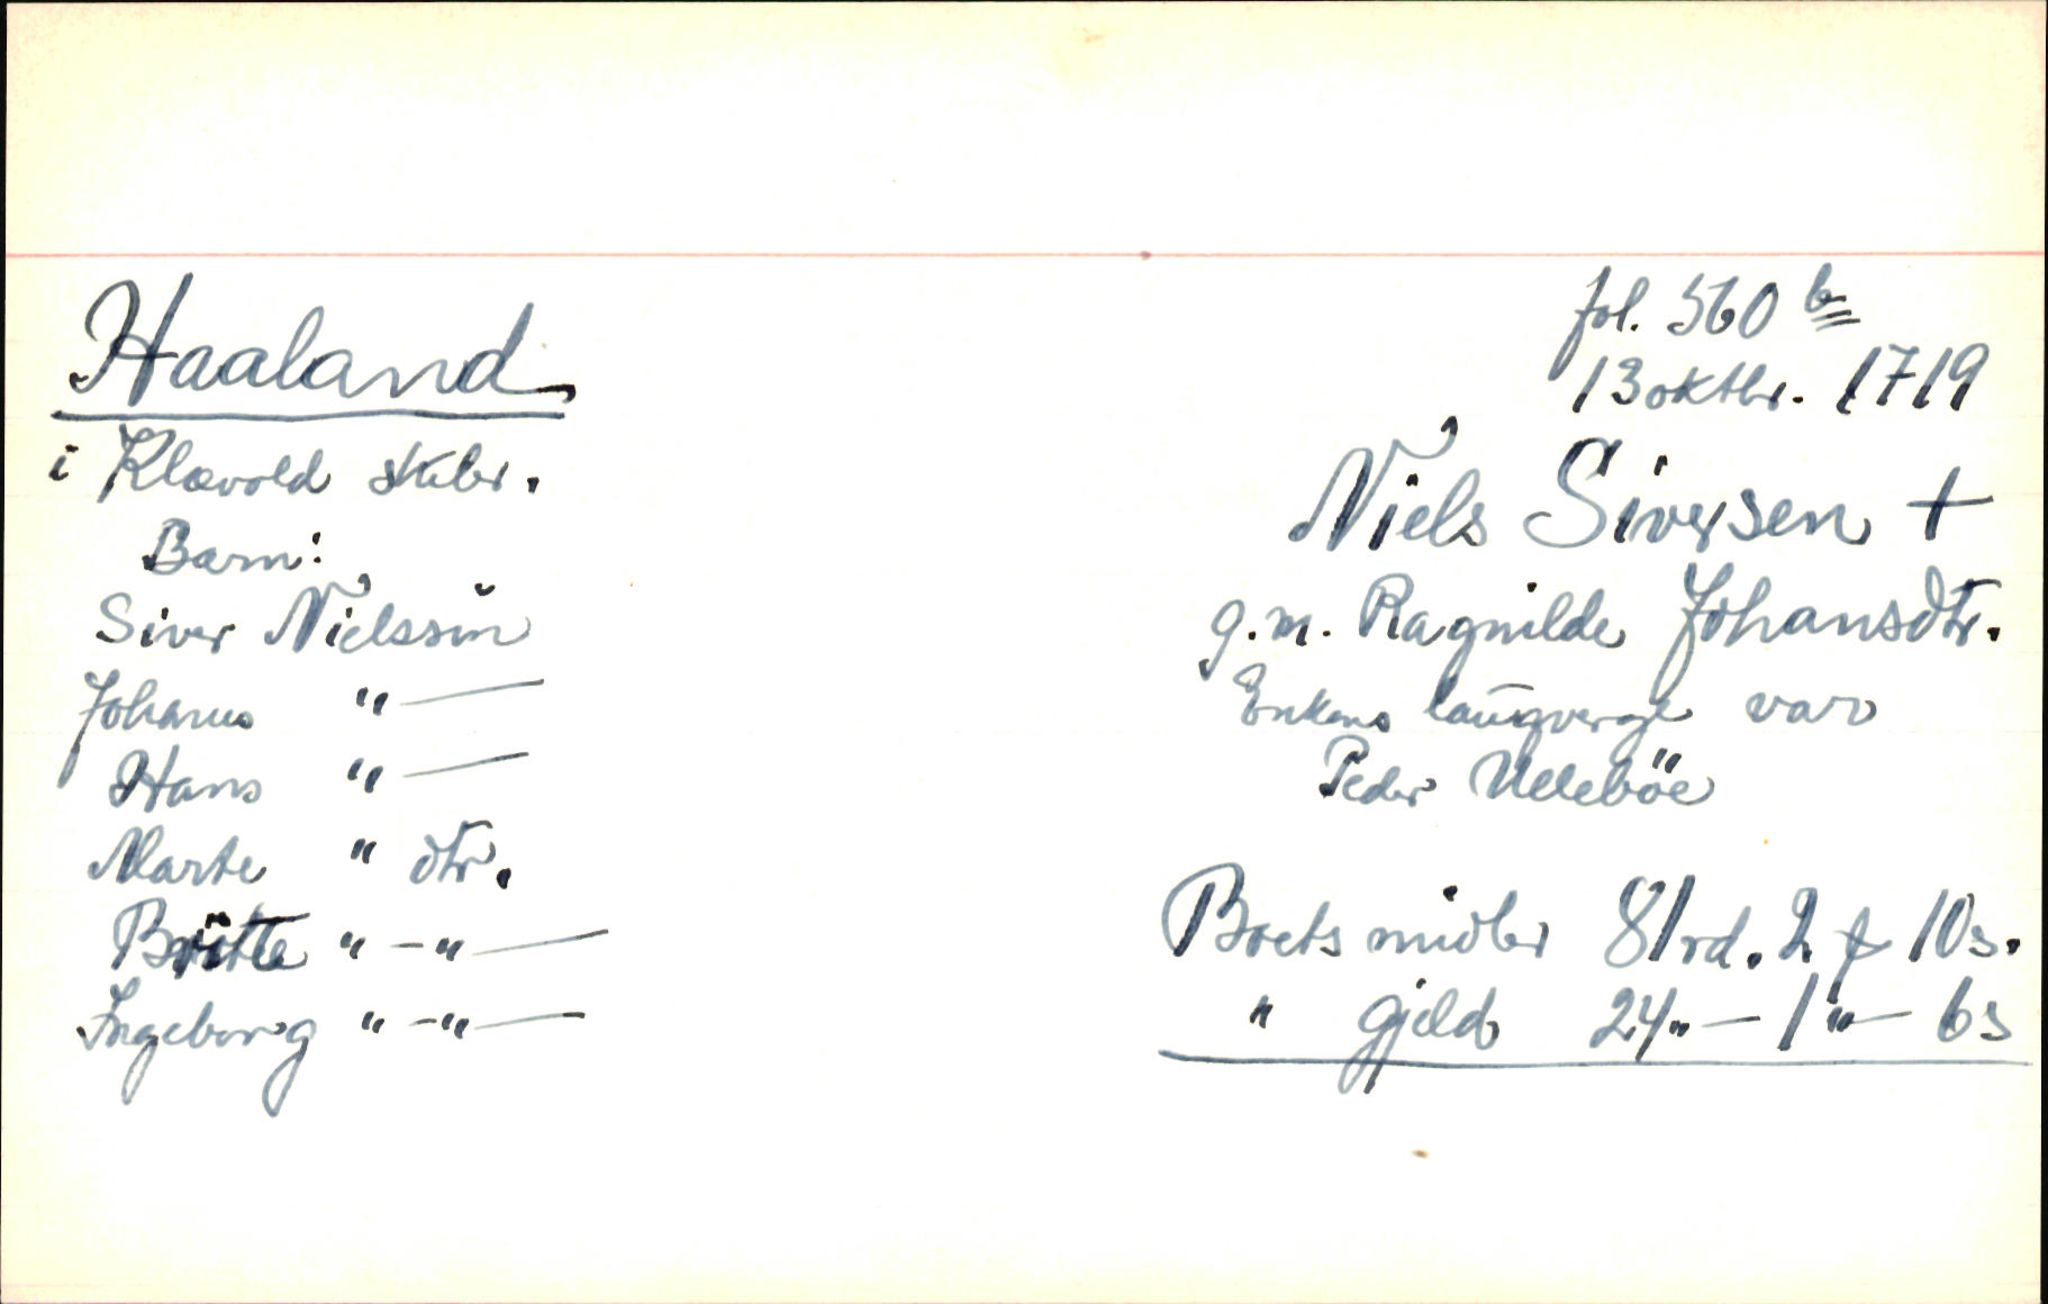 Haaland
i Klævold skibr.
Barn:
Siver Nielssøn
Johans " —
Hans " —
Marte " dtr.
Britte " - " —
Ingeborg " - " —
fol. 560 b
13 oktbr. 1719
Niels Siversen +
g.m. Ragnilde Johansdtr.
Enkens laugverge var
Peder Ullebøe
Boets midler 81 rd. 2 ƒ 10 s.
" gjeld 24 " — 1 " — 6 s